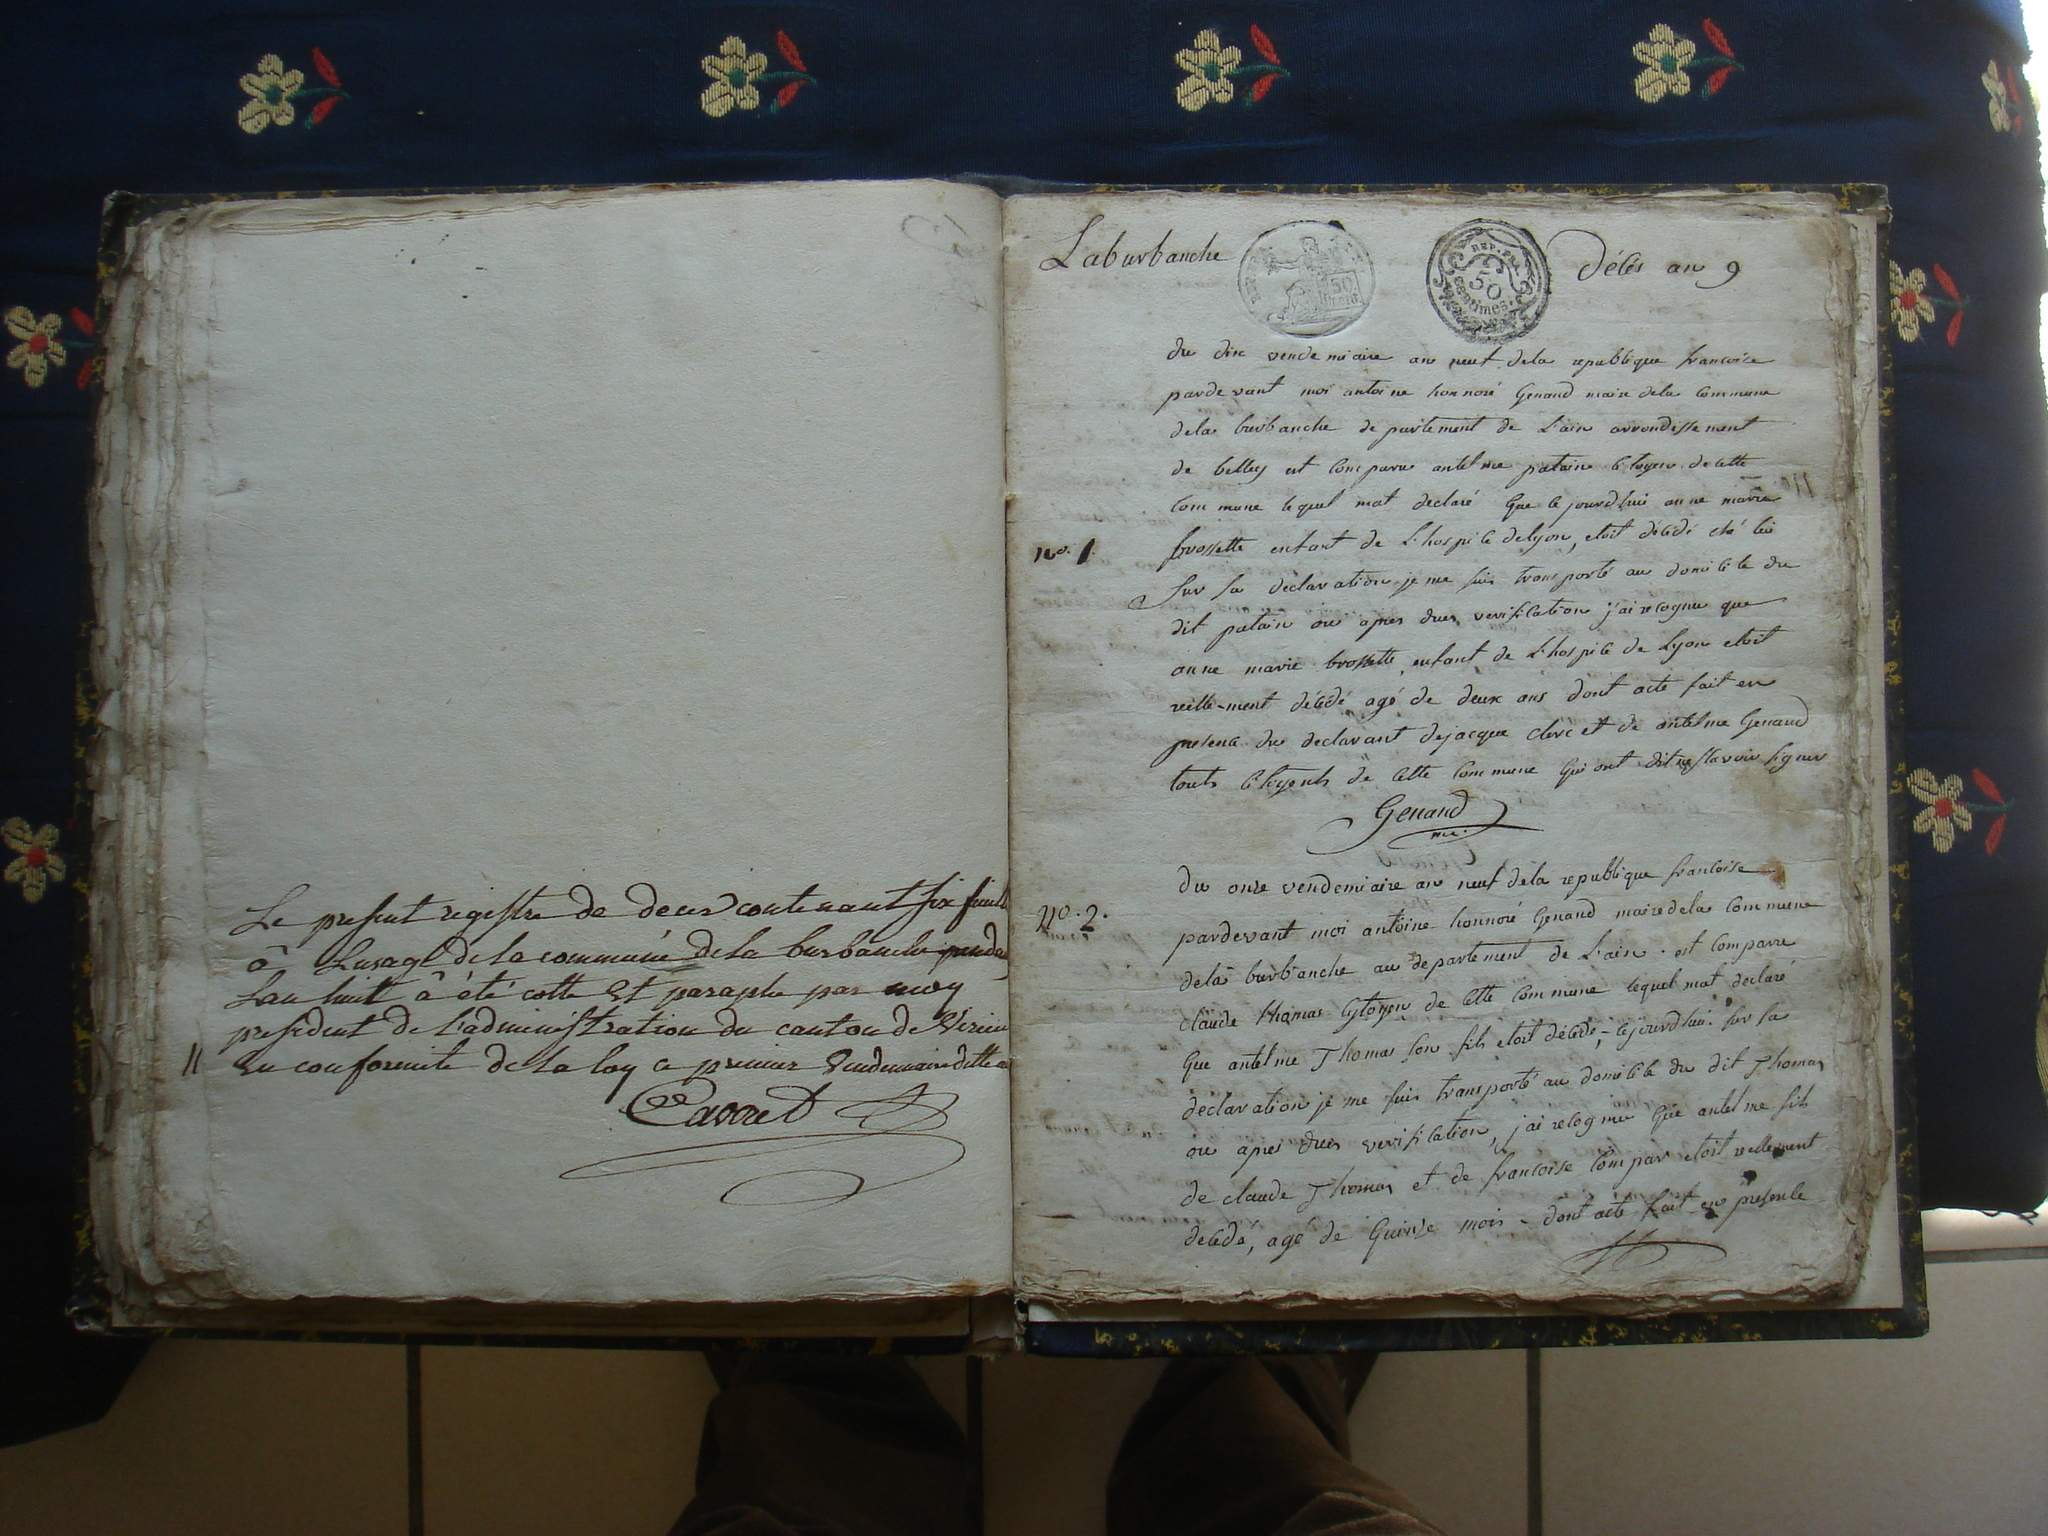 Le present registre de deces contenant six feuill
à Lusage de la commune de la burbanche penda
Lan huit à été cotté Et paraphe par moy
president de Ladministration du canton de Virieu
En conformite de la loy ce premier Vendemiaire dit a
Cavoret
Laburbanche
REP. FRA.
50
centimes
décés an 9
du dix vendemiaire an neuf dela republique francoise
pardevant moi antoine honnoré Genand maire dela commune
dela burbanche departement de L'ain arrondissement
de belley est comparu antelme patain citoyen de cette
commune lequel mat declaré que cejourdhui anne marie
No. 1.
brossette enfant de L'hospice delyon, etoit décédé ché lui
Sur sa déclaration je me suis transporté au domicile du
dit patain ou apres dues verification j'ai recognu que
anne marie brossette, enfant de L'hospice de Lyon etoit
reelle-ment décédé agé de deux ans dont acte fait en
presence du declarant de jacque clerc et de antelme Genand
touts citoyents de cette commune qui ont dit ne scavoir signer
Genand
me.
du onze vendemiaire an neuf dela republique francoise
No. 2.
pardevant moi antoine honnoré Genand maire dela commune
dela burbanche au departement de L'ain. est comparu
claude thomas cytoyen de cette commune lequel mat declaré
que antelme Thomas son fils etoit décédé, cejourdhui. sur sa
déclaration je me suis transporté au domicile du dit Thomas
ou apres dues verification, j'ai recognu que antelme fils
de claude Thomas et de francoise Compar etoit reellement
décédé, agé de quinze mois - dont acte fait en presence